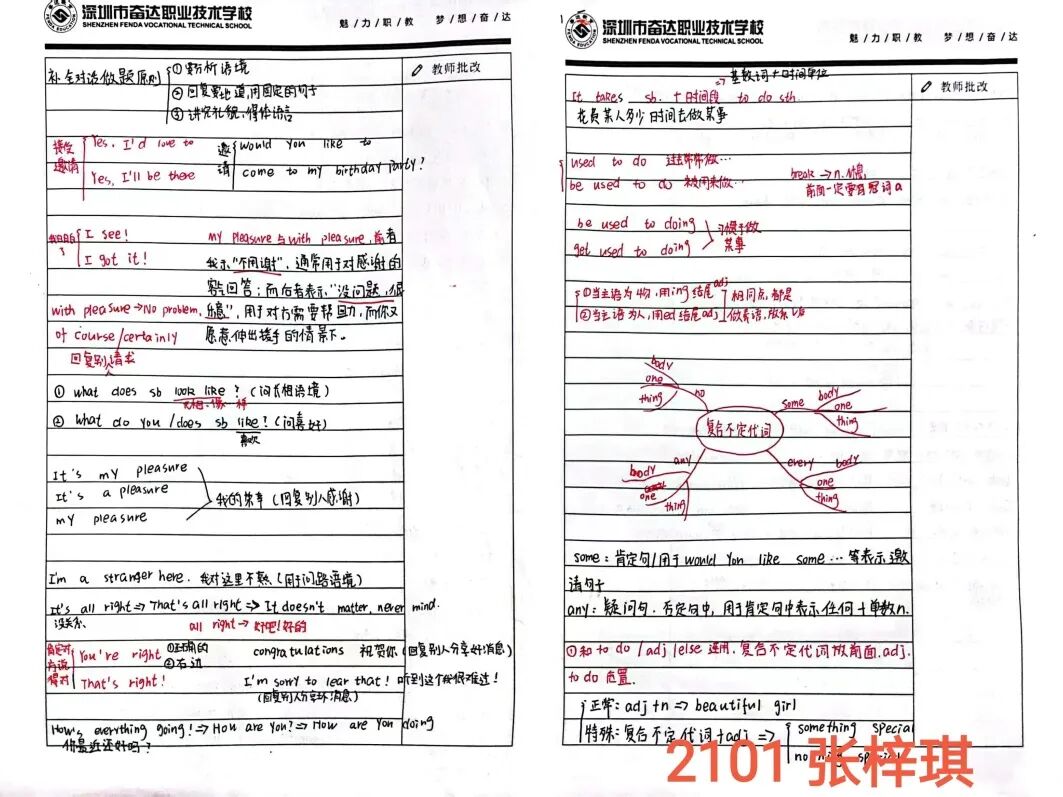 深圳市奋达职业技术学校
SHENZHEN FENDA VOCATIONAL TECHNICAL SCHOOL
魅/力/职/教 梦/想/奋/达
教师批改
补全对话做题原则
①要分析语境
②回复要地道,用固定的句子
③讲究礼貌,得体语言
接受邀请
Yes, I'd love to
Yes, I'll be there
邀请
would you like to
come to my birthday party?
我明白了
I see!
I got it!
my pleasure 与with pleasure,前者
表示"不用谢",通常用于对感谢的
客气回答;而后者表示"没问题,很
with pleasure→No problem, 乐意",用于对方需要帮助,而你又
of course/certainly 愿意伸出援手的情景下。
回复别人请求
① what does sb look like? (问长相语境)
长相·像一样
② what do you /does sb like? (问喜好)
喜欢
It's my pleasure
It's a pleasure
my pleasure
我的荣幸(回复别人感谢)
I'm a stranger here. 我对这里不熟(用于问路语境)
It's all right⇒That's all right⇒It doesn't matter, never mind.
没关系
all right→好吧!好的
肯定对方说得对
You're right ①正确的
②右边
That's right!
congratulations 祝贺你(回复别人分享好消息)
I'm sorry to lear that! 听到这个我很难过!
(回复别人分享坏消息)
How's everything going!⇒How are you?⇒How are you doing
你最近还好吗?
深圳市奋达职业技术学校
SHENZHEN FENDA VOCATIONAL TECHNICAL SCHOOL
魅/力/职/教 梦/想/奋/达
教师批改
⇒基数词+时间单位
It takes sb. + 时间段 to do sth.
花费某人多少时间去做某事
used to do 过去常常做…
be used to do 被用来做…
break→n.休息,
前面一定要有冠词a
be used to doing
get used to doing
习惯于做
某事
①当主语为物,用ing结尾adj
②当主语为人,用ed结尾adj
相同点,都是
做表语,放系V后
复合不定代词
no
body
one
thing
some
body
one
thing
any
body
one
thing
every
body
one
thing
some: 肯定句/用于would you like some…等表示邀
请句子
any: 疑问句.否定句中,用于肯定句中表示任何+单数n.
①和to do/adj/else连用,复合不定代词放前面.adj.
to do后置.
正常: adj+n⇒beautiful girl
特殊:复合不定代词+adj⇒
something special
nothing special
2101 张梓琪